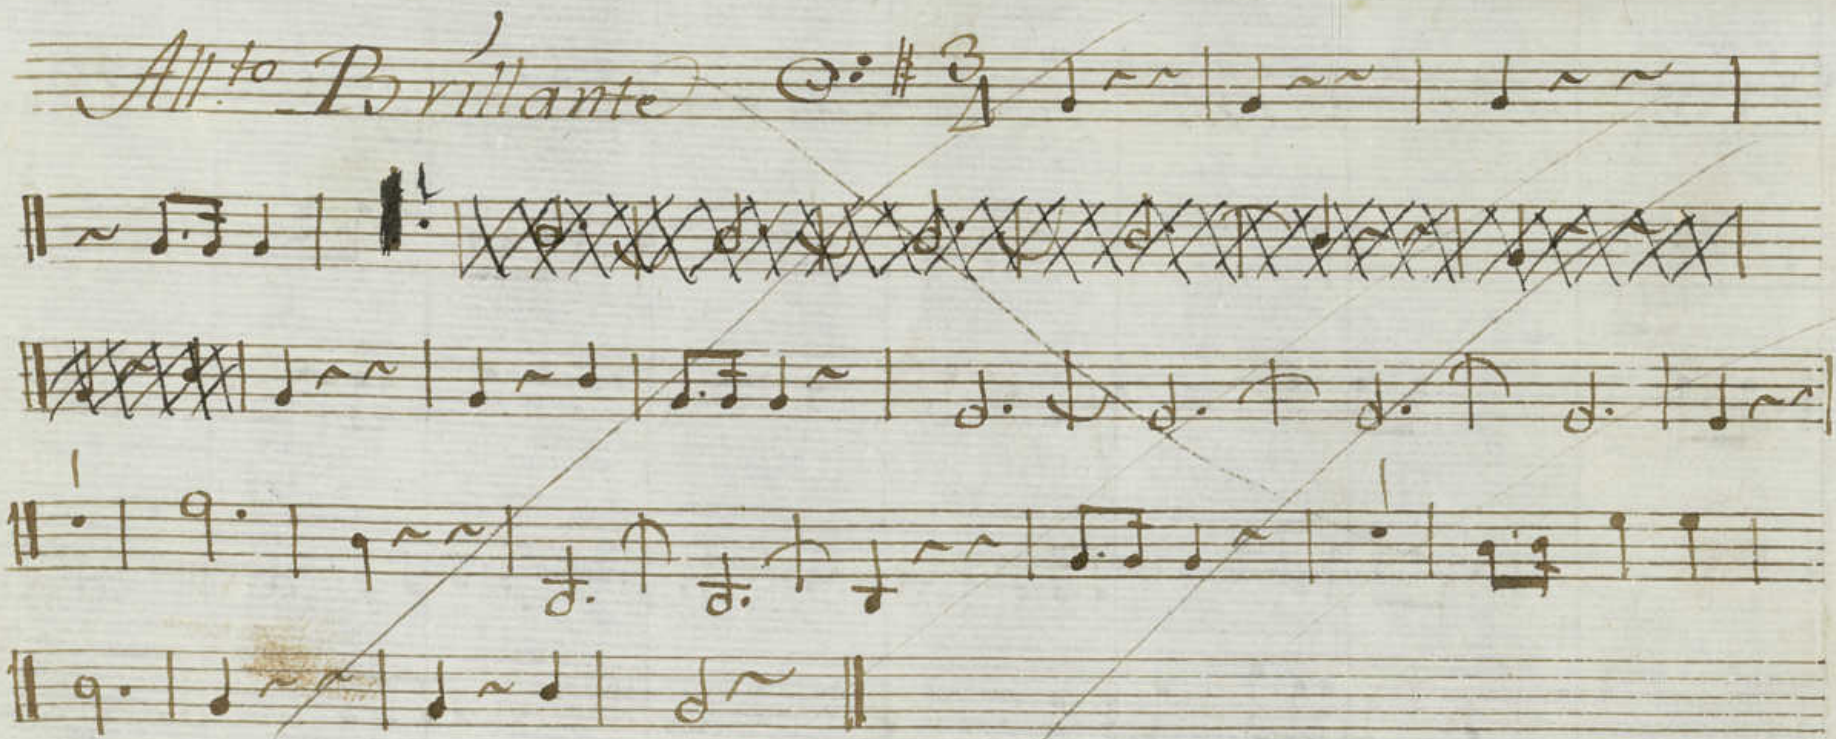 All.to Brillante 3/4